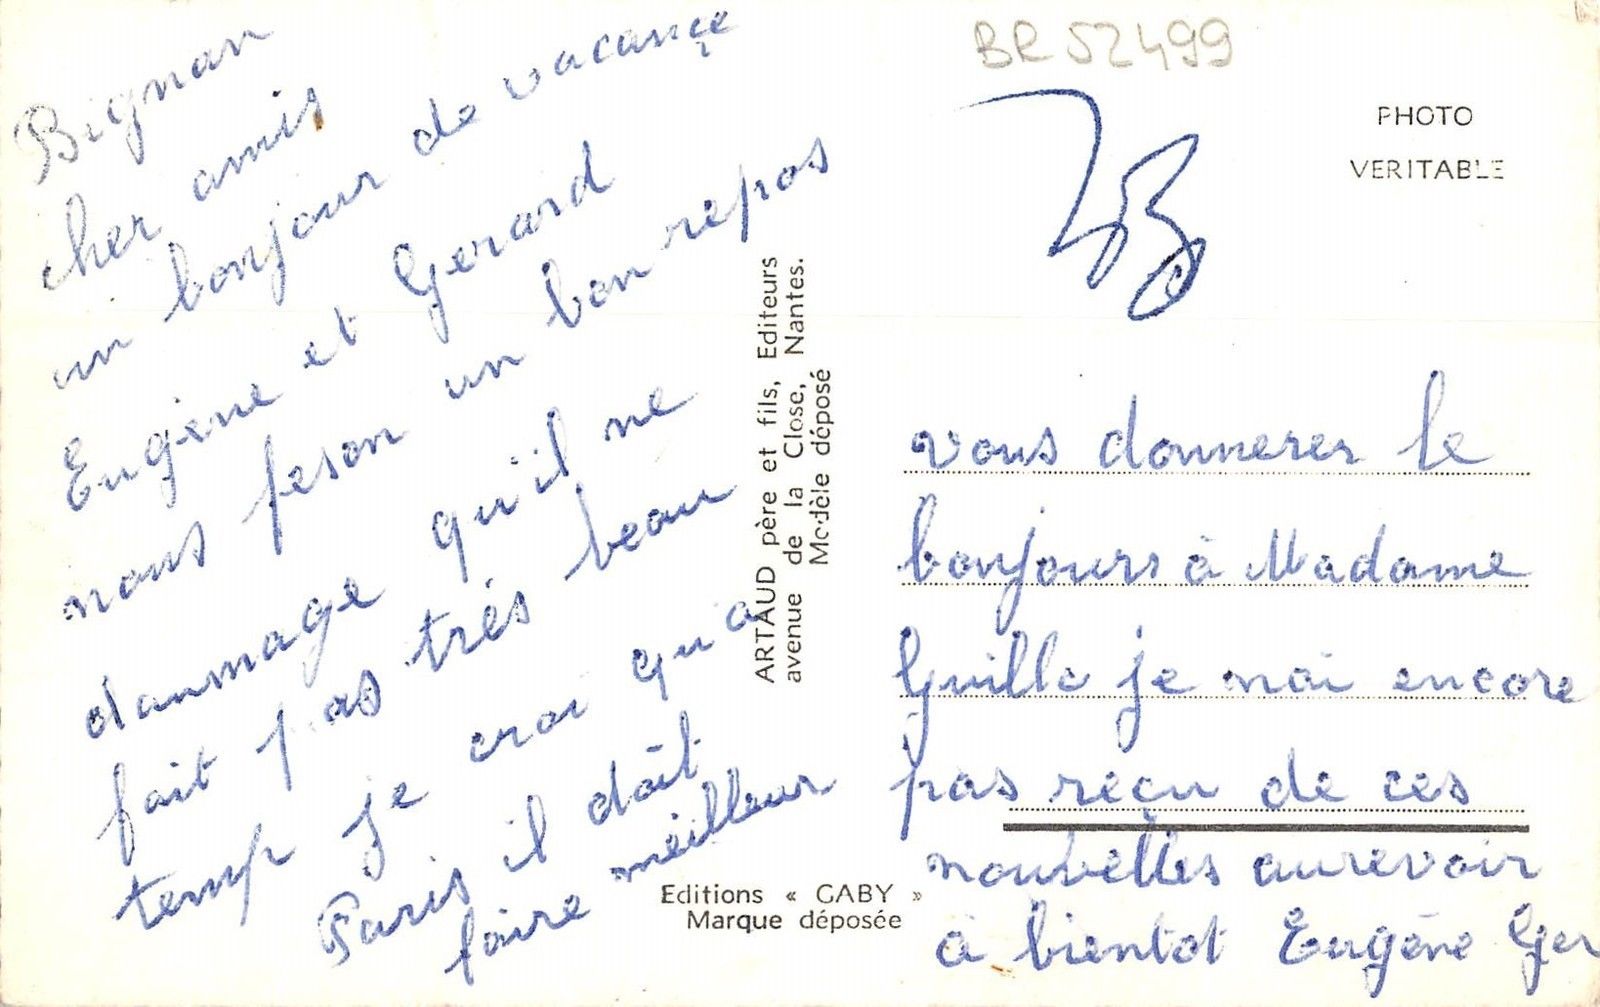 Bignan
cher amis
un bonjour de vacançe
Eugène et Gerard
nous feson un bon repos
daumage qu'il ne
fait pas très beau
temp je croi qu'a
Paris il doît
faire meilleur
ARTAUD père et fils, Editeurs
avenue de la Close, Nantes.
Modèle déposé
Editions « GABY »
Marque déposée
BR 52499
PHOTO
VERITABLE
vous donnerer le
bonjours à Madame
Guille je nai encore
pas reçu de ces
nouvelles aurevoir
à bientot Eugène Ger